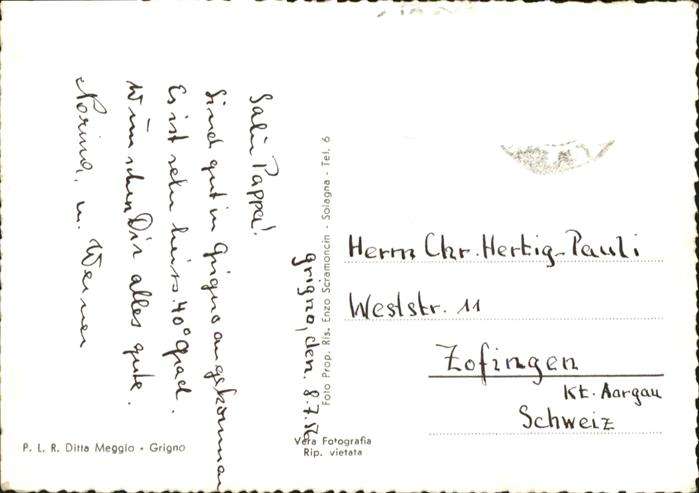 Grigno, den. 8.7.56
Salü Pappa!
Sind gut in Grigno angekommen
Es ist sehr heiss. 40° Grad.
Wünschen Dir alles gute.
Norina, u. Werner
Herrn Chr. Hertig-Pauli
Weststr. 11
Zofingen
Kt. Aargau
Schweiz
Foto Prop. Ris. Enzo Scramoncin - Solagna - Tel. 6
P. L. R. Ditta Meggio - Grigno
Vera Fotografia
Rip. vietata